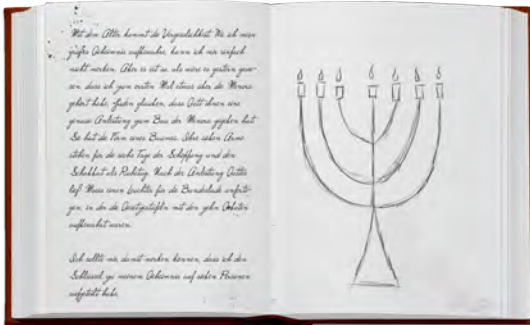 Mit dem Alter kommt die Vergesslichkeit. Wo ich mein
großes Geheimnis aufbewahre, kann ich mir einfach
nicht merken. Aber es ist so, als wäre es gestern gewe-
sen, dass ich zum ersten Mal etwas über die Menora
gehört habe. Juden glauben, dass Gott ihnen eine
genaue Anleitung zum Bau der Menora gegeben hat.
Sie hat die Form eines Baumes. Ihre sieben Arme
stehen für die sechs Tage der Schöpfung und den
Schabbat als Ruhetag. Nach der Anleitung Gottes
ließ Mose einen Leuchter für die Bundeslade anferti-
gen, in der die Gesetzestafeln mit den zehn Geboten
aufbewahrt waren.
Ich sollte mir damit merken können, dass ich den
Schlüssel zu meinem Geheimnis auf sieben Personen
aufgeteilt habe.